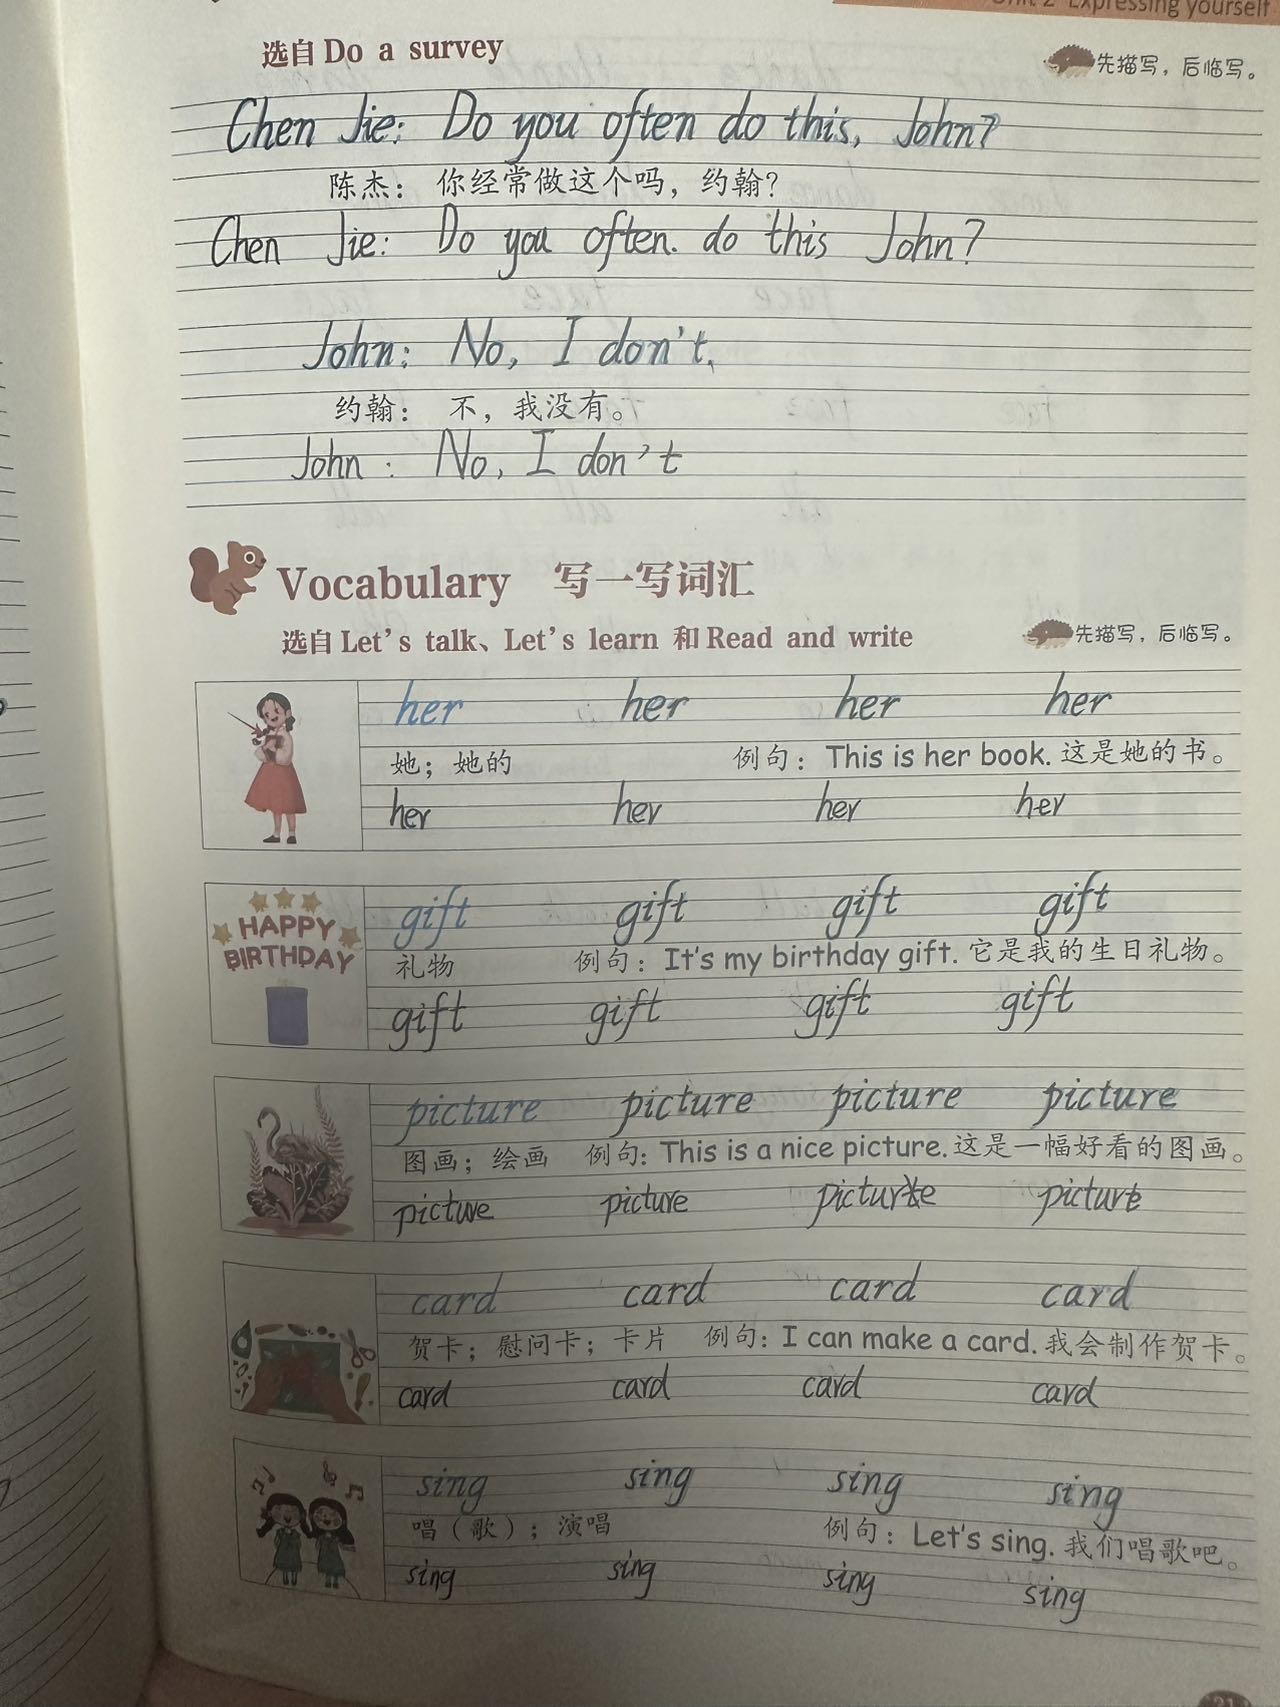 Unit 2 Expressing yourself
选自 Do a survey
先描写，后临写。
Chen Jie: Do you often do this, John?
陈杰： 你经常做这个吗，约翰？
Chen Jie: Do you often. do this John?
John: No, I don't.
约翰： 不，我没有。
John : No, I don't
Vocabulary 写一写词汇
选自 Let's talk、Let's learn 和 Read and write
先描写，后临写。
her her her her
她；她的 例句：This is her book. 这是她的书。
her her her her
HAPPY
BIRTHDAY
gift gift gift gift
礼物 例句：It's my birthday gift. 它是我的生日礼物。
gift gift gift gift
picture picture picture picture
图画；绘画 例句：This is a nice picture. 这是一幅好看的图画。
picture picture picture picture
card card card card
贺卡；慰问卡；卡片 例句：I can make a card. 我会制作贺卡。
card card card card
sing sing sing sing
唱（歌）；演唱 例句：Let's sing. 我们唱歌吧。
sing sing sing sing